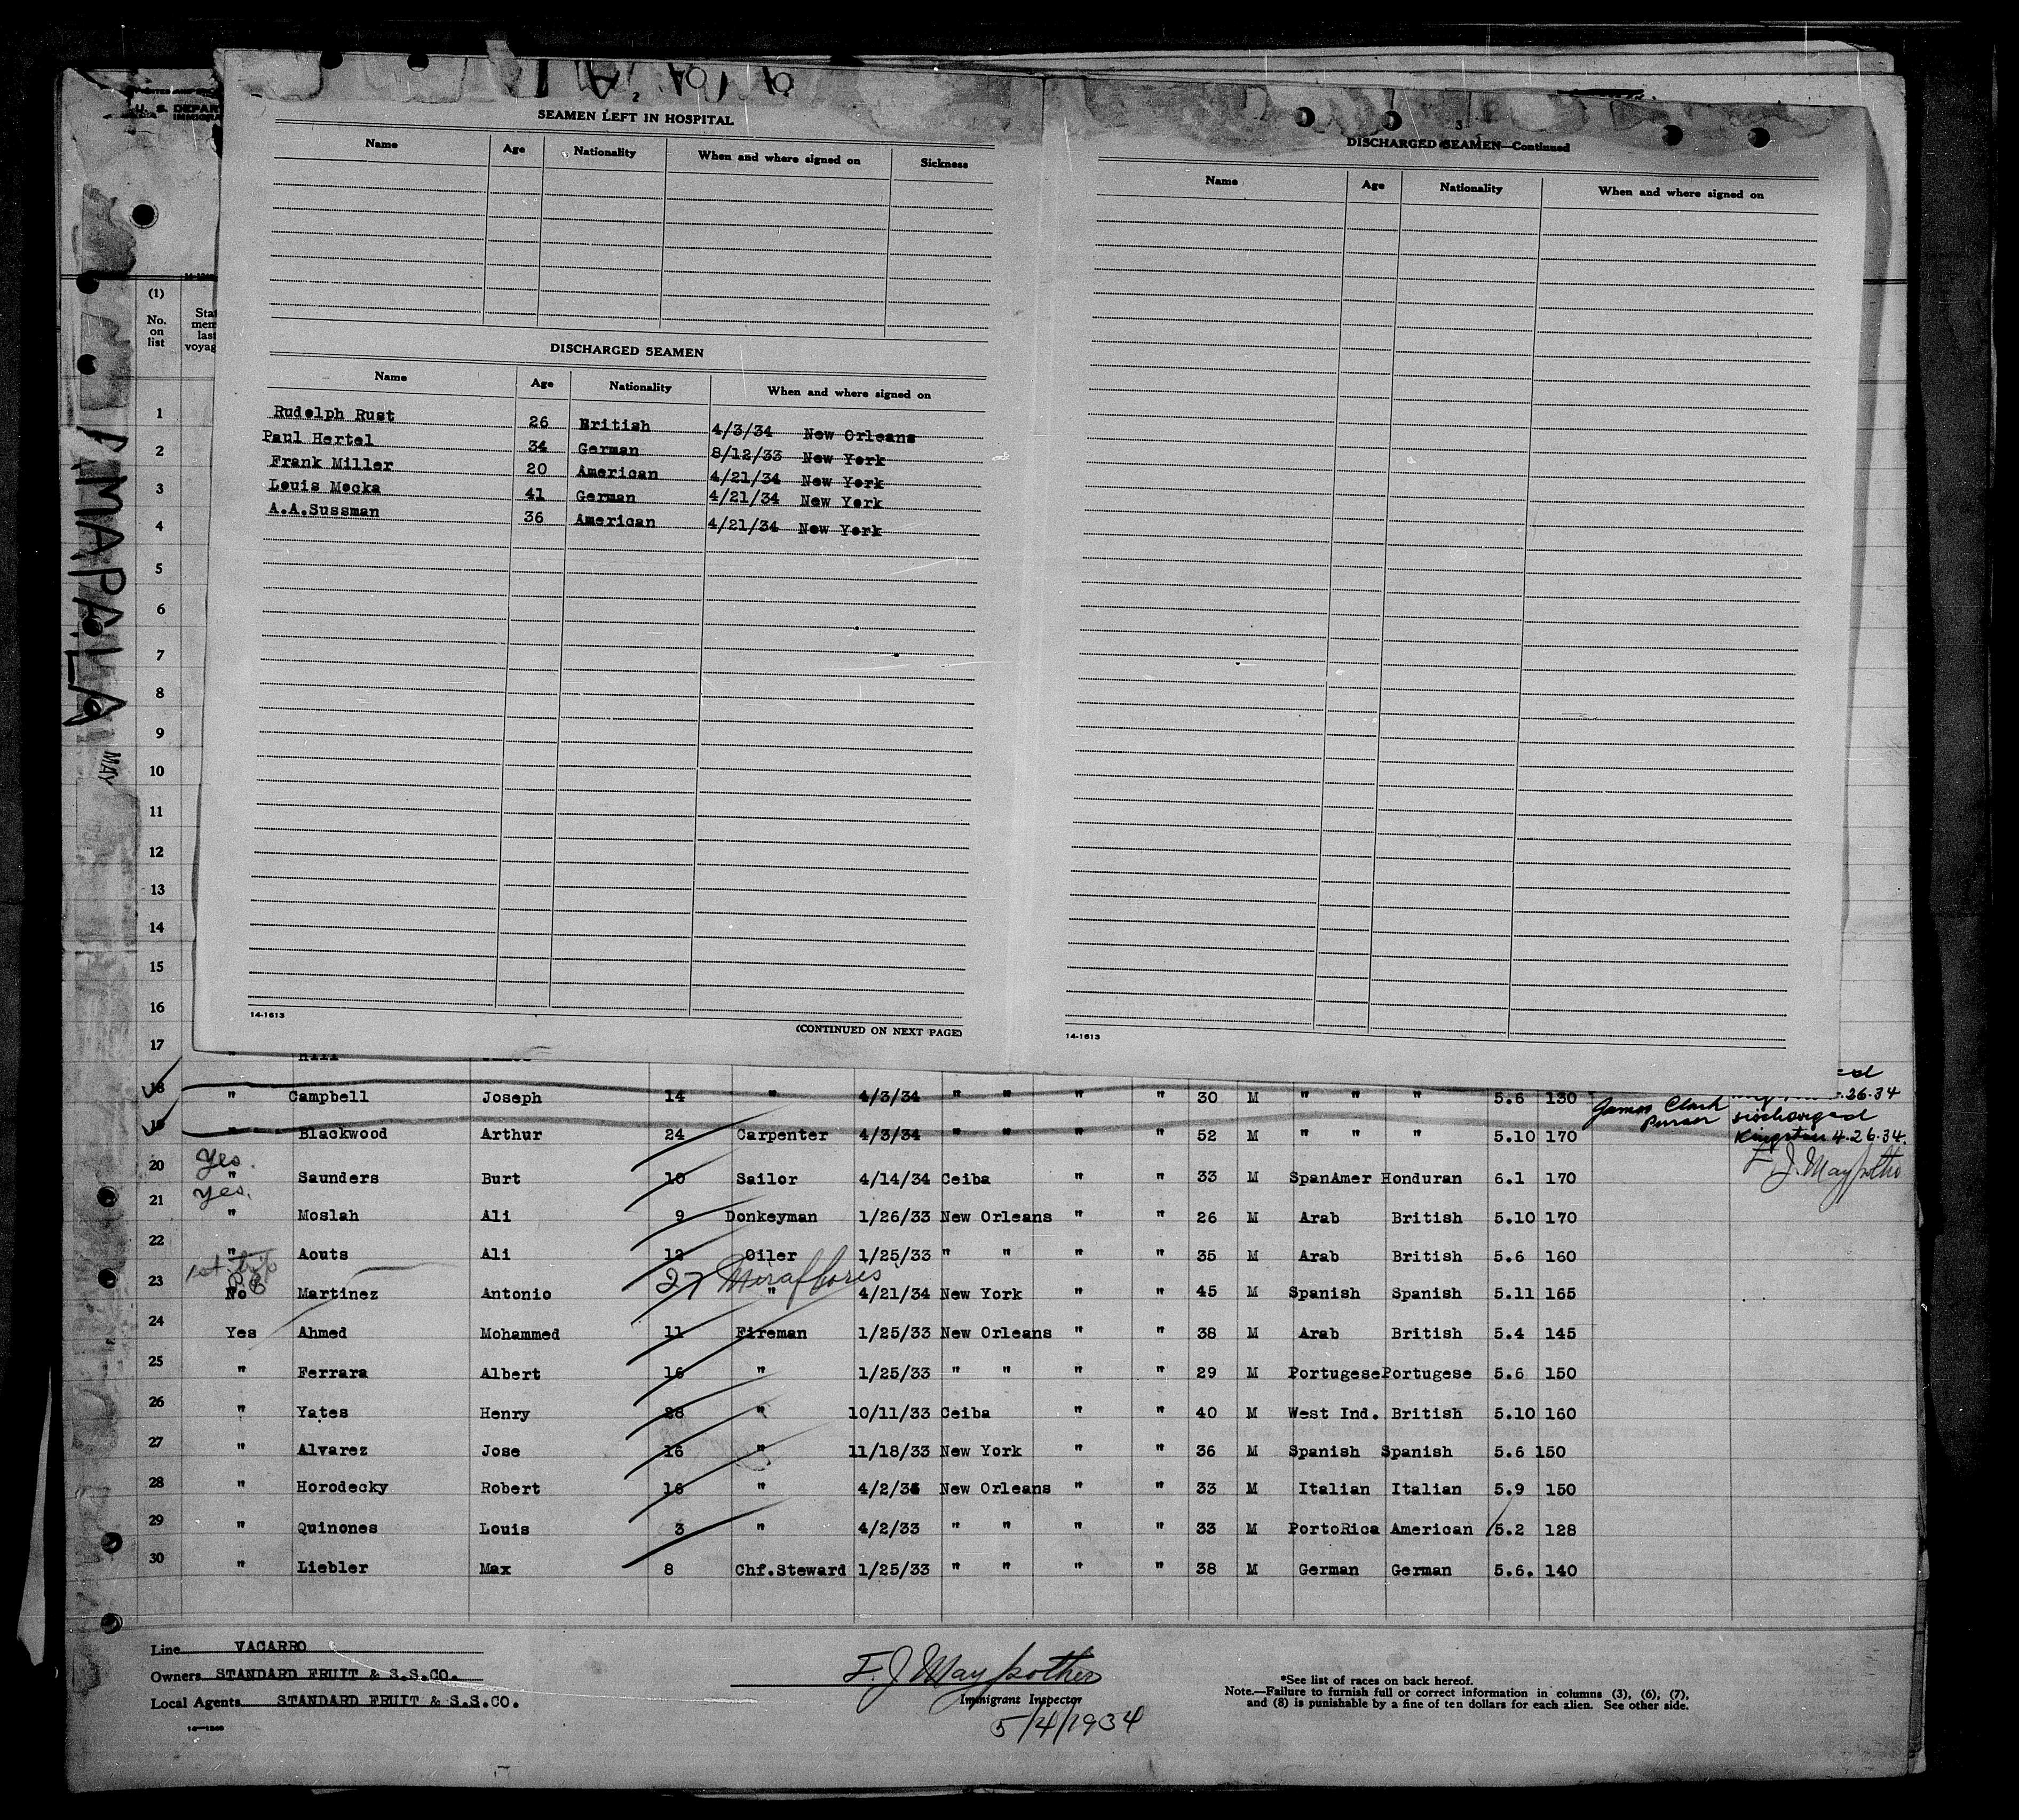 U. S. DEPAR
IMMIGRA
2
SEAMEN LEFT IN HOSPITAL
Name Age Nationality When and where signed on Sickness
DISCHARGED SEAMEN
Name Age Nationality When and where signed on
Rudolph Rust 26 British 4/3/34 New Orleans
Paul Hertel 34 German 8/12/33 New York
Frank Miller 20 American 4/21/34 New York
Louis Mocka 41 German 4/21/34 New York
A.A.Sussman 36 American 4/21/34 New York
14-1613
(CONTINUED ON NEXT PAGE)
3
DISCHARGED SEAMEN—Continued
Name Age Nationality When and where signed on
14-1613
AMAPALA
MAY
(1)
No.
on
list
Sta
men
last
voyag
1
2
3
4
5
6
7
8
9
10
11
12
13
14
15
16
17 " Hill
18 " Campbell Joseph 14 " 4/3/34 " " " " 30 M " " " 5.6 130
26.34
19 " Blackwood Arthur 24 Carpenter 4/3/34 " " " " 52 M " " " 5.10 170 James Clark
Purser
discharged
Kingston 4.26.34.
20 Yes.
" Saunders Burt 10 Sailor 4/14/34 Ceiba " " 33 M SpanAmer Honduran 6.1 170
21 Yes.
" Moslah Ali 9 Donkeyman 1/26/33 New Orleans " " 26 M Arab British 5.10 170
22 " Aouts Ali 12 Oiler 1/25/33 " " " " 35 M Arab British 5.6 160
1st trip
27 Miraflores
23 No Martinez Antonio " 4/21/34 New York " " 45 M Spanish Spanish 5.11 165
24 Yes Ahmed Mohammed 11 Fireman 1/25/33 New Orleans " " 38 M Arab British 5.4 145
25 " Ferrara Albert 16 " 1/25/33 " " " " 29 M Portugese Portugese 5.6 150
26 " Yates Henry 28 " 10/11/33 Ceiba " " 40 M West Ind. British 5.10 160
27 " Alvarez Jose 16 " 11/18/33 New York " " 36 M Spanish Spanish 5.6 150
28 " Horodecky Robert 16 " 4/2/34 New Orleans " " 33 M Italian Italian 5.9 150
29 " Quinones Louis 3 " 4/2/33 " " " " 33 M PortoRica American 5.2 128
30 " Liebler Max 8 Chf.Steward 1/25/33 " " " " 38 M German German 5.6. 140
Line VACARRO
Owners STANDARD FRUIT & S.S.CO.
Local Agents STANDARD FRUIT & S.S.CO.
F. J. Maypother
Immigrant Inspector
5/4/1934
*See list of races on back hereof.
Note.—Failure to furnish full or correct information in columns (3), (6), (7),
and (8) is punishable by a fine of ten dollars for each alien. See other side.